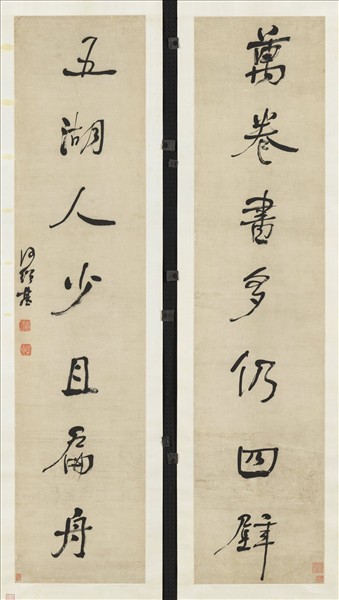 萬卷書多仍四壁
五湖人少且扁舟
何紹基